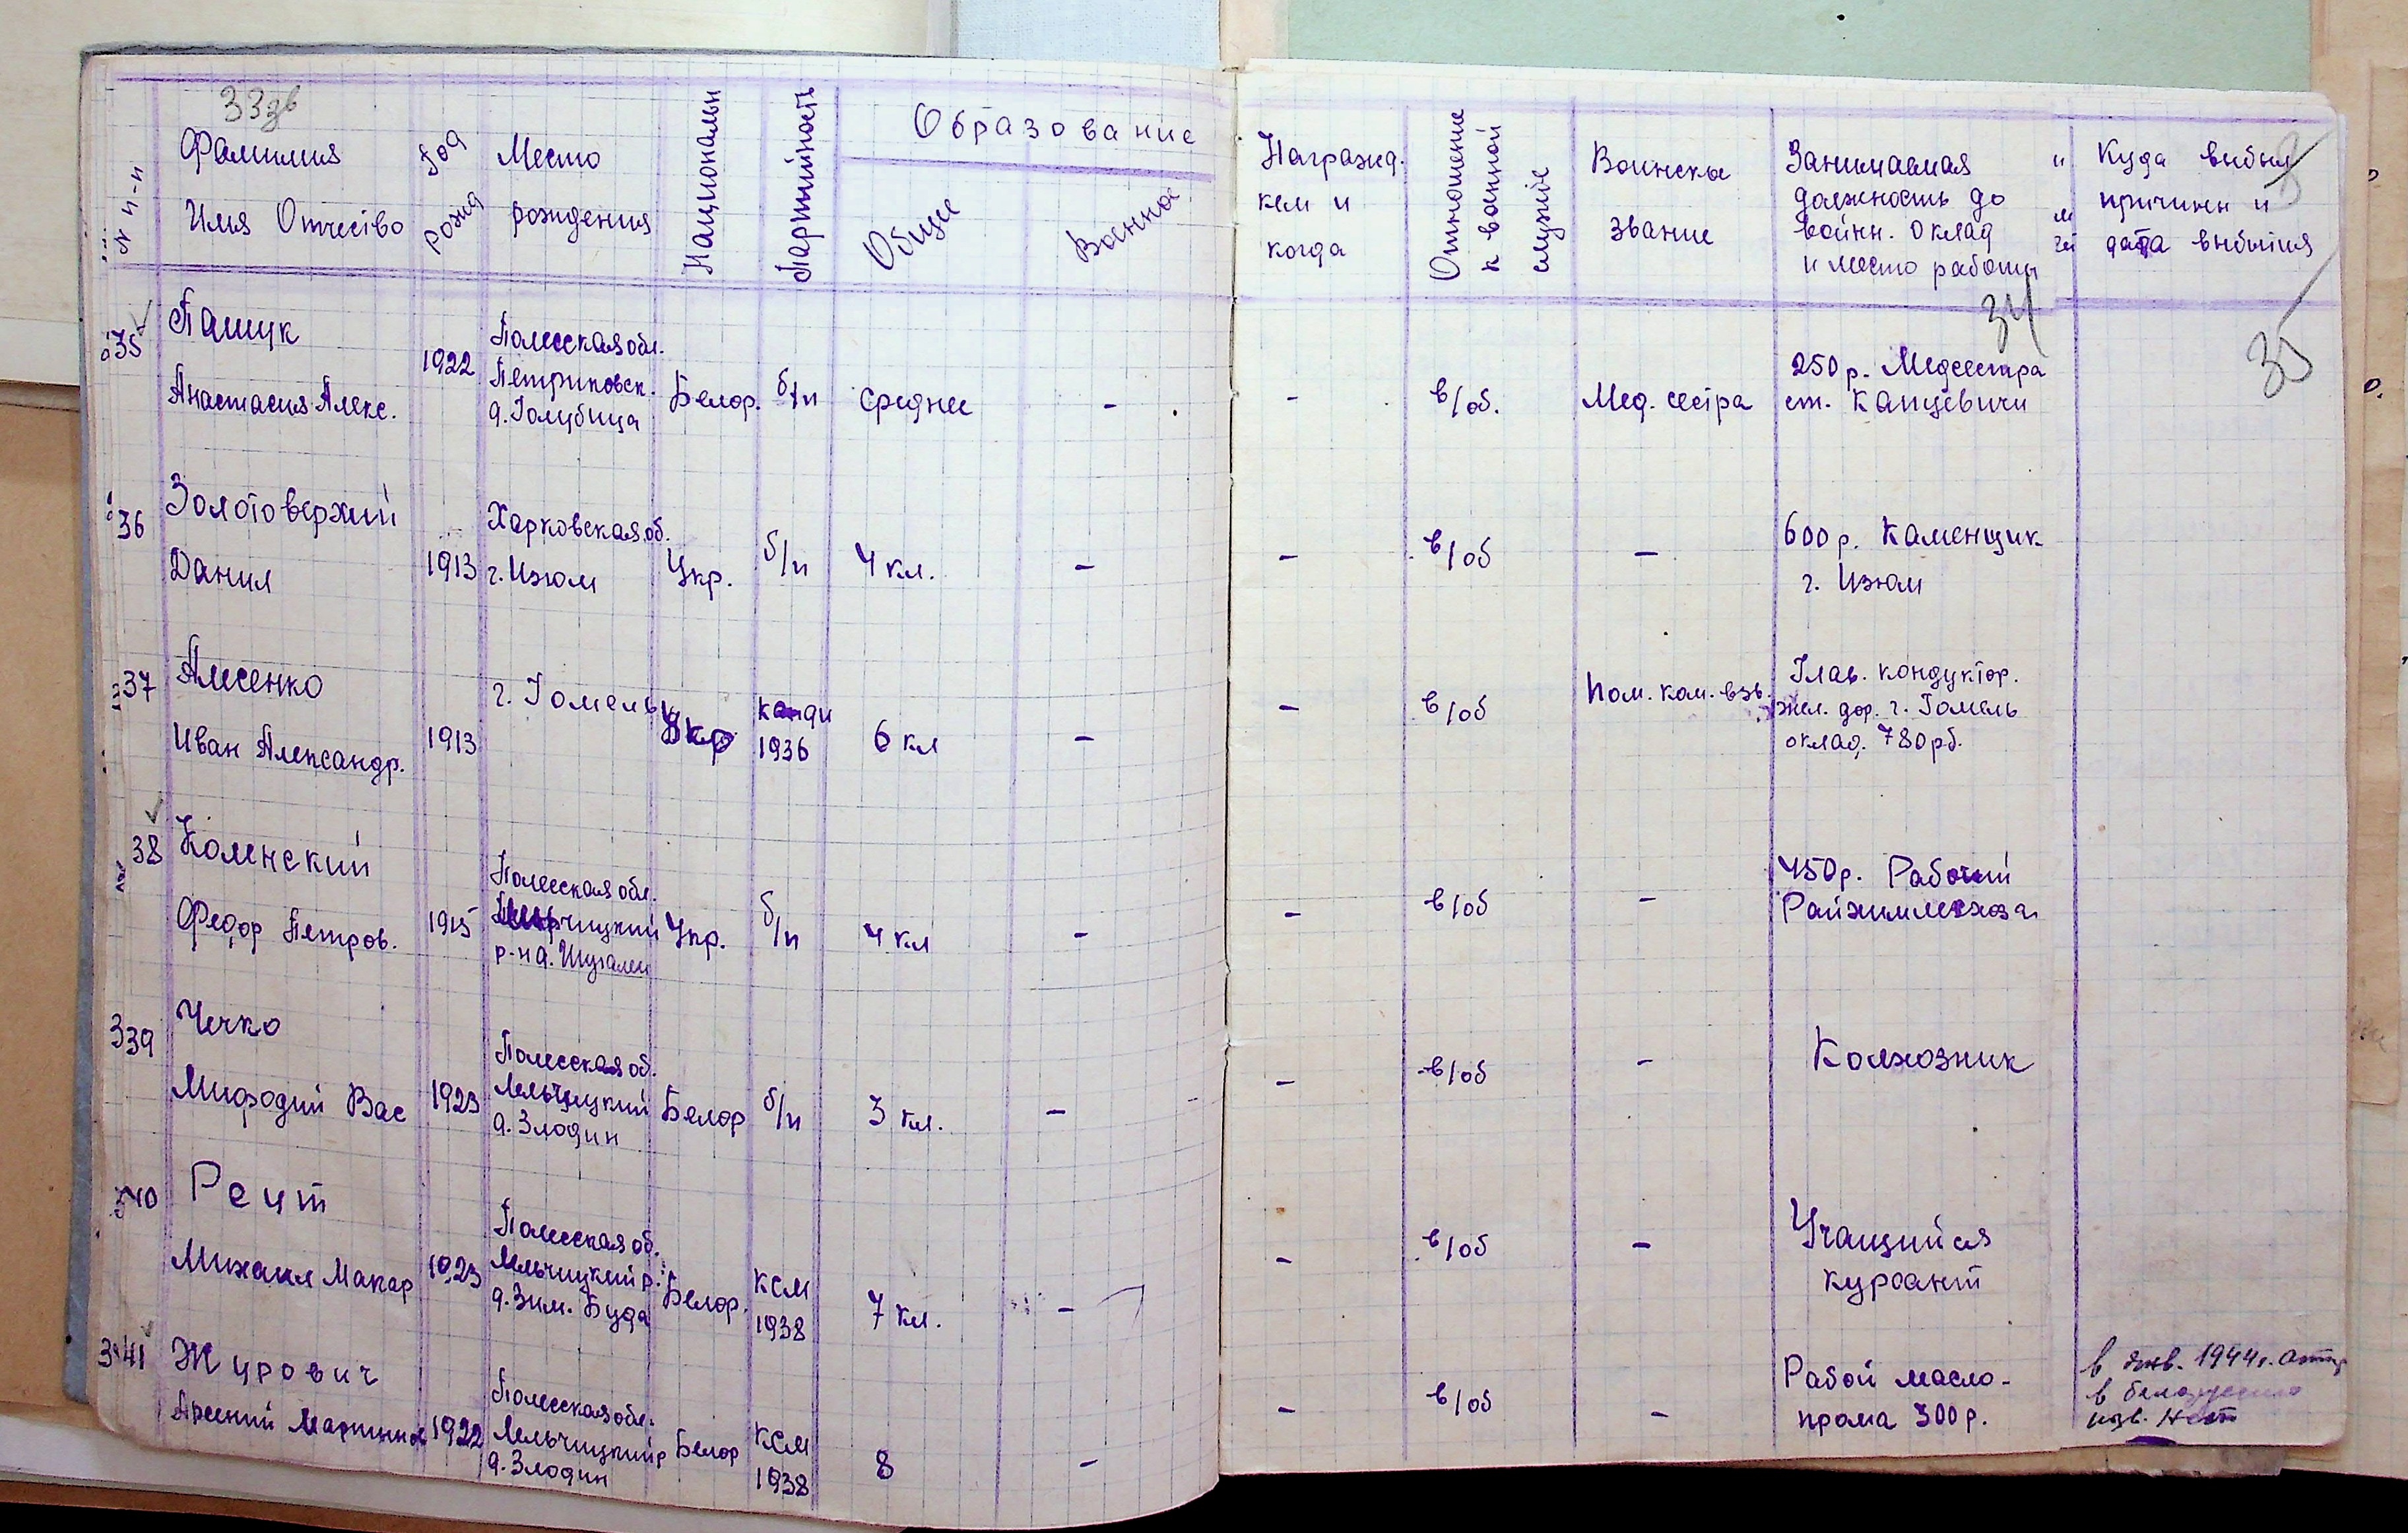 33 зв
N п-п
Фамилия
Имя Отчество
Год
рожд
Место
рождения
Националън
Партийность
Образование
Общее
Военно
Награжд.
кем и
когда
Отношение
к военной
службе
Воинское
звание
Занимаемая
должность до
войны. Оклад
и место работы
Куда выбыл
причины и
дата выбытия
34
35
35
Пашук
Анастасия Алекс.
1922
Полесская обл.
Петриковск.
д. Голубица
Белор.
б/п
среднее
-
-
в/об.
Мед. сестра
250 р. Медсестра
ст. Капцевичи
36
Золотоверхий
Данил
1913
Харковская об.
г. Изюм
Укр.
б/п
4 кл.
-
-
в/об
-
600 р. Каменщик
г. Изюм
37
Алесенко
Иван Александр.
1913
г. Гомель
Укр
канди
1936
6 кл
-
-
в/об
Пом. ком. взв.
Глав. кондуктор.
жел. дор. г. Гомель
оклад. 780 рб.
38
Коленский
Федор Петров.
1915
Полесская обл.
р-н д.
Укр.
б/п
4 кл
-
-
в/об
-
450 р. Рабочий
339
Чечко
Мифодий Вас
1923
Полесская об.
Лельчицкий
д. Злодин
Белор
б/п
3 кл.
-
-
в/об
-
Колхозник
340
Рецт
Михаил Макар
1923
Полесская об.
Лельчицкий р.
д. Зим. Буда
Белор.
КСМ
1938
7 кл.
-
-
в/об
-
Учащийся
курсант
341
Журович
Арсений
1922
Полесская обл.
Лельчицкий р
д. Злодин
Белор
КСМ
1938
8
-
-
в/об
-
Рабой масло-
прома 300 р.
в янв. 1944 г.
в
изв. нет